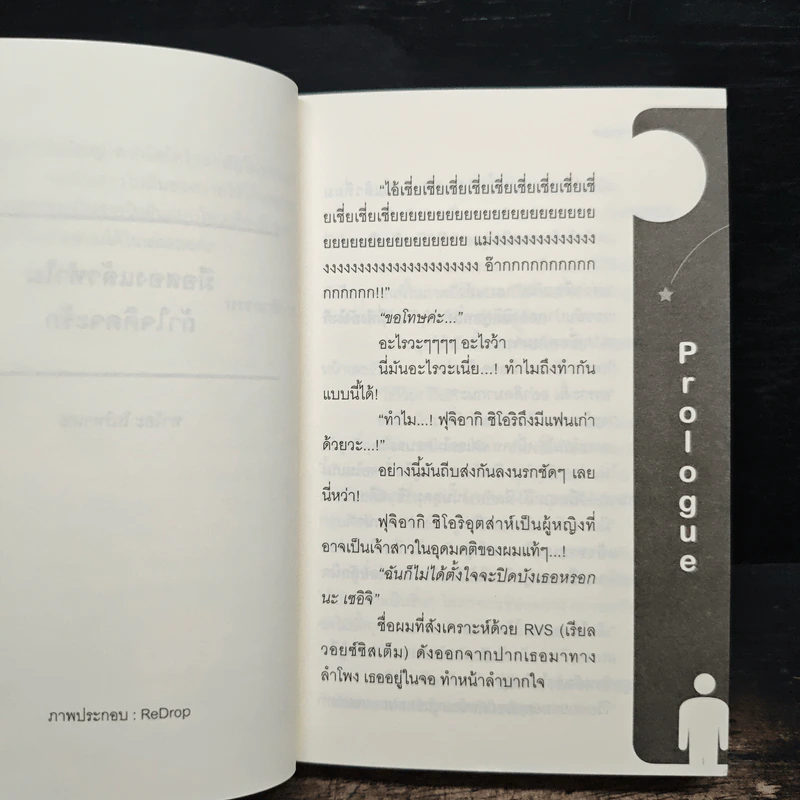 ภาพประกอบ : ReDrop
“ไอ้เชี่ยเชี่ยเชี่ยเชี่ยเชี่ยเชี่ยเชี่ยเชี่ยเชี่
ยเชี่ยเชี่ยเชี่ยยยยยยยยยยยยยยยยยยยยยย
ยยยยยยยยยยยยยยยย แม่งงงงงงงงงงงงงงง
งงงงงงงงงงงงงงงงงงงงงงง อ๊ากกกกกกกกกก
กกกกกก!!”
“ขอโทษค่ะ...”
อะไรวะๆๆๆๆ อะไรว้า
นี่มันอะไรวะเนี่ย...! ทำไมถึงทำกัน
แบบนี้ได้!
“ทำไม...! ฟุจิอากิ ชิโอริถึงมีแฟนเก่า
ด้วยวะ...!”
อย่างนี้มันถีบส่งกันลงนรกชัดๆ เลย
นี่หว่า!
ฟุจิอากิ ชิโอริอุตส่าห์เป็นผู้หญิงที่
อาจเป็นเจ้าสาวในอุดมคติของผมแท้ๆ...!
“ฉันก็ไม่ได้ตั้งใจจะปิดบังเธอหรอก
นะ เซอิจิ”
ชื่อผมที่สังเคราะห์ด้วย RVS (เรียล
วอยซ์ซิสเต็ม) ดังออกจากปากเธอมาทาง
ลำโพง เธออยู่ในจอ ทำหน้าลำบากใจ
Prologue